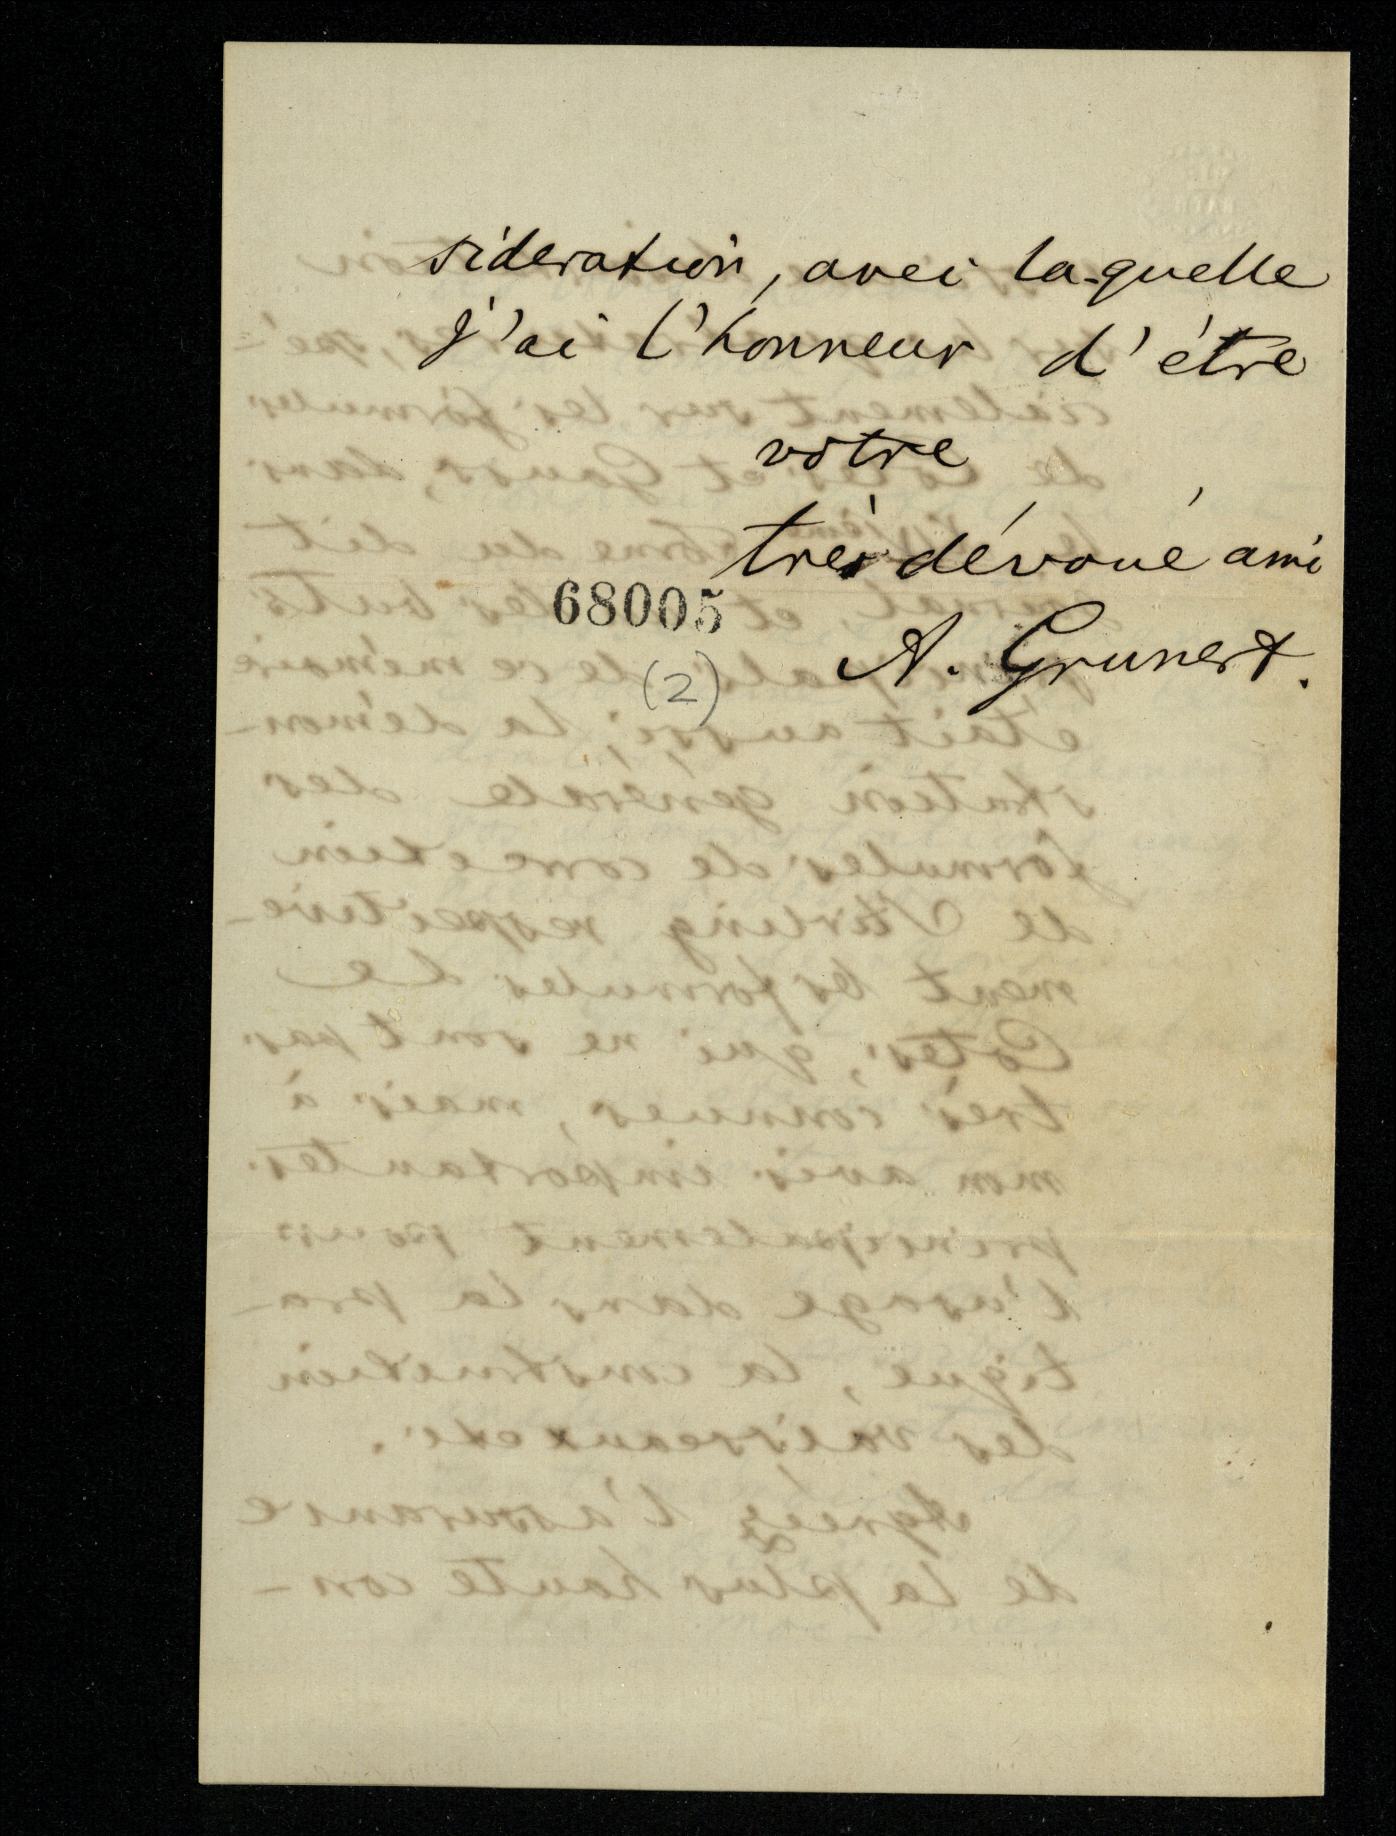 sideration, avec la-quelle
j'ai l'honneur d'étre
votre
très dévoué ami
68005
(2)
A. Grunert.